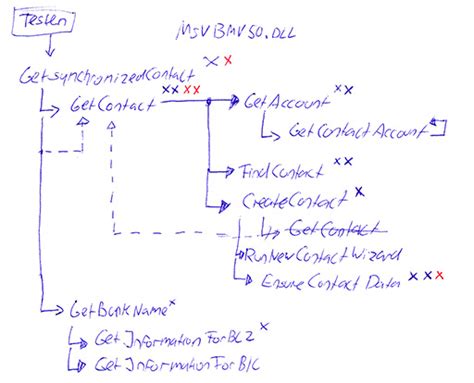 Testen
MSVBMV50.DLL
GetsynchronizedContact x x
GetContact xx xx
GetAccount xx
GetContactAccount
FindContact xx
CreateContact x
GetContact
RunNewContactWizard
EnsureContactData x x x
GetBankName x
GetInformationForBLZ x
GetInformationForBIC